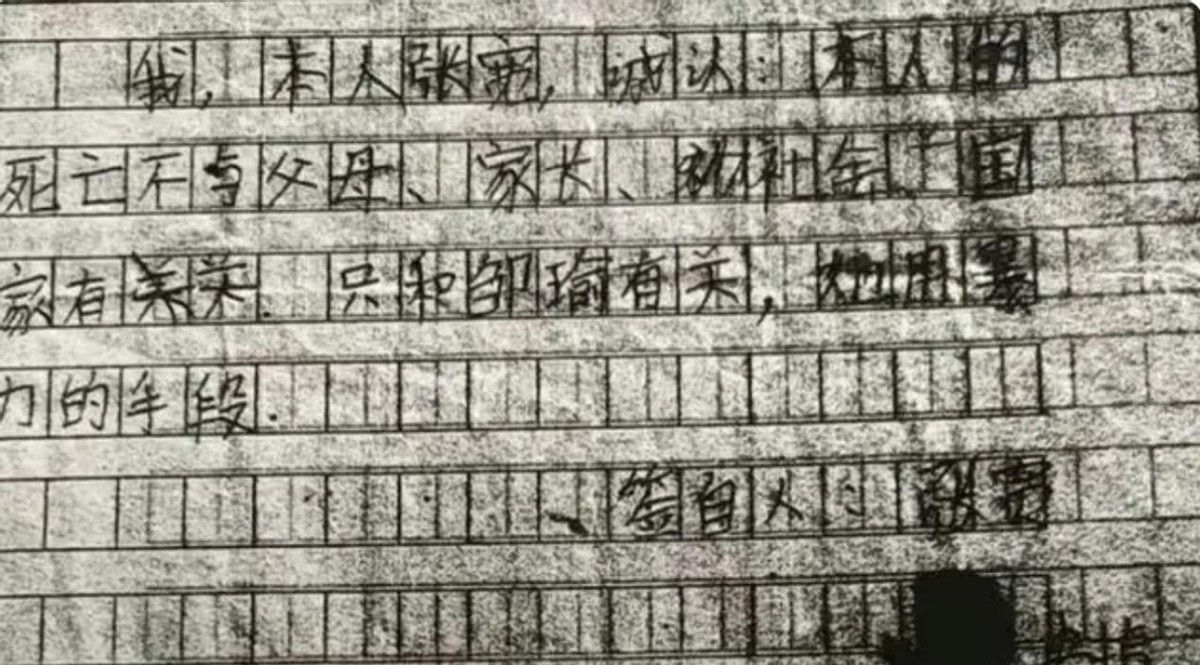 我,本人张宽,诚认:本人的
死亡不与父母、家长、社会、国
家有关. 只和邹瑜有关,她用暴
力的手段.
签自人:张宽